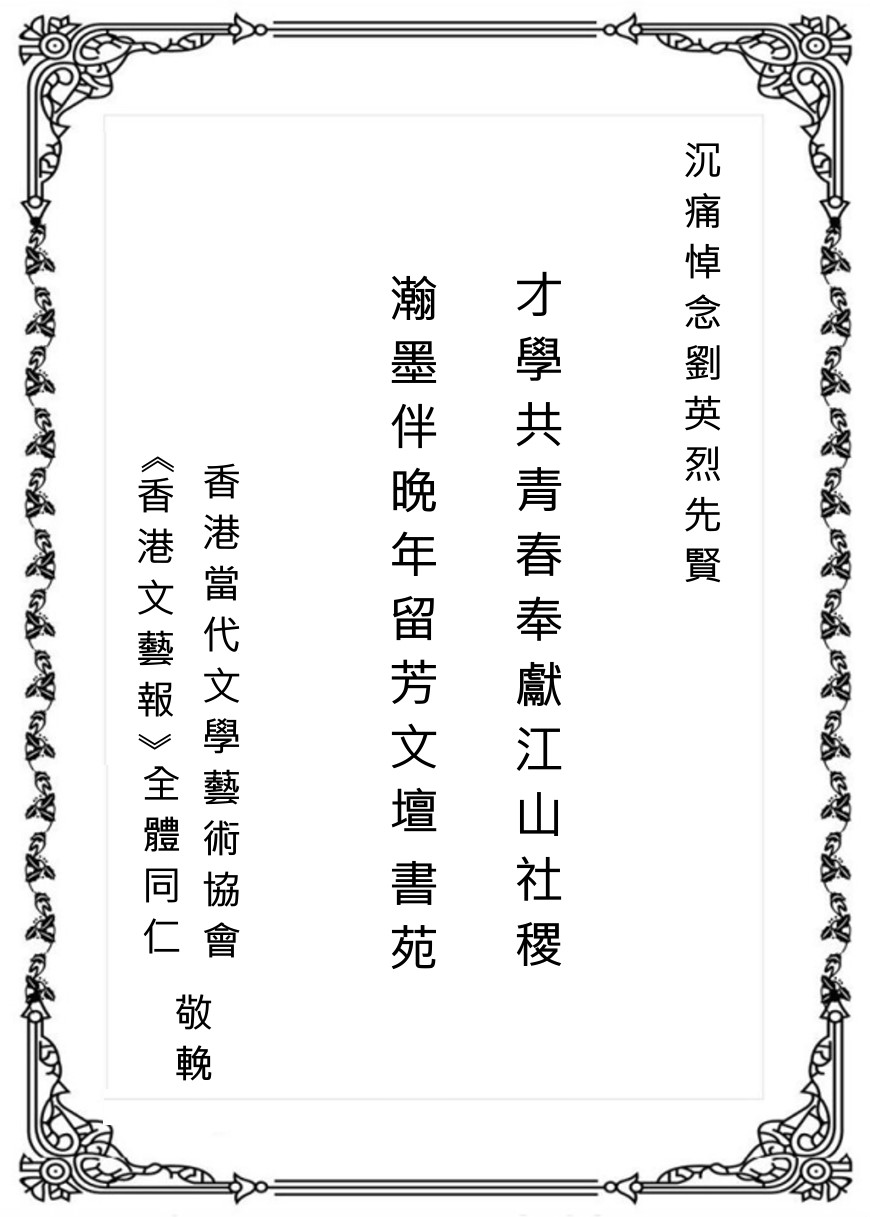 沉痛悼念劉英烈先賢
才學共青春奉獻江山社稷
瀚墨伴晚年留芳文壇書苑
香港當代文學藝術協會
《香港文藝報》全體同仁
敬輓